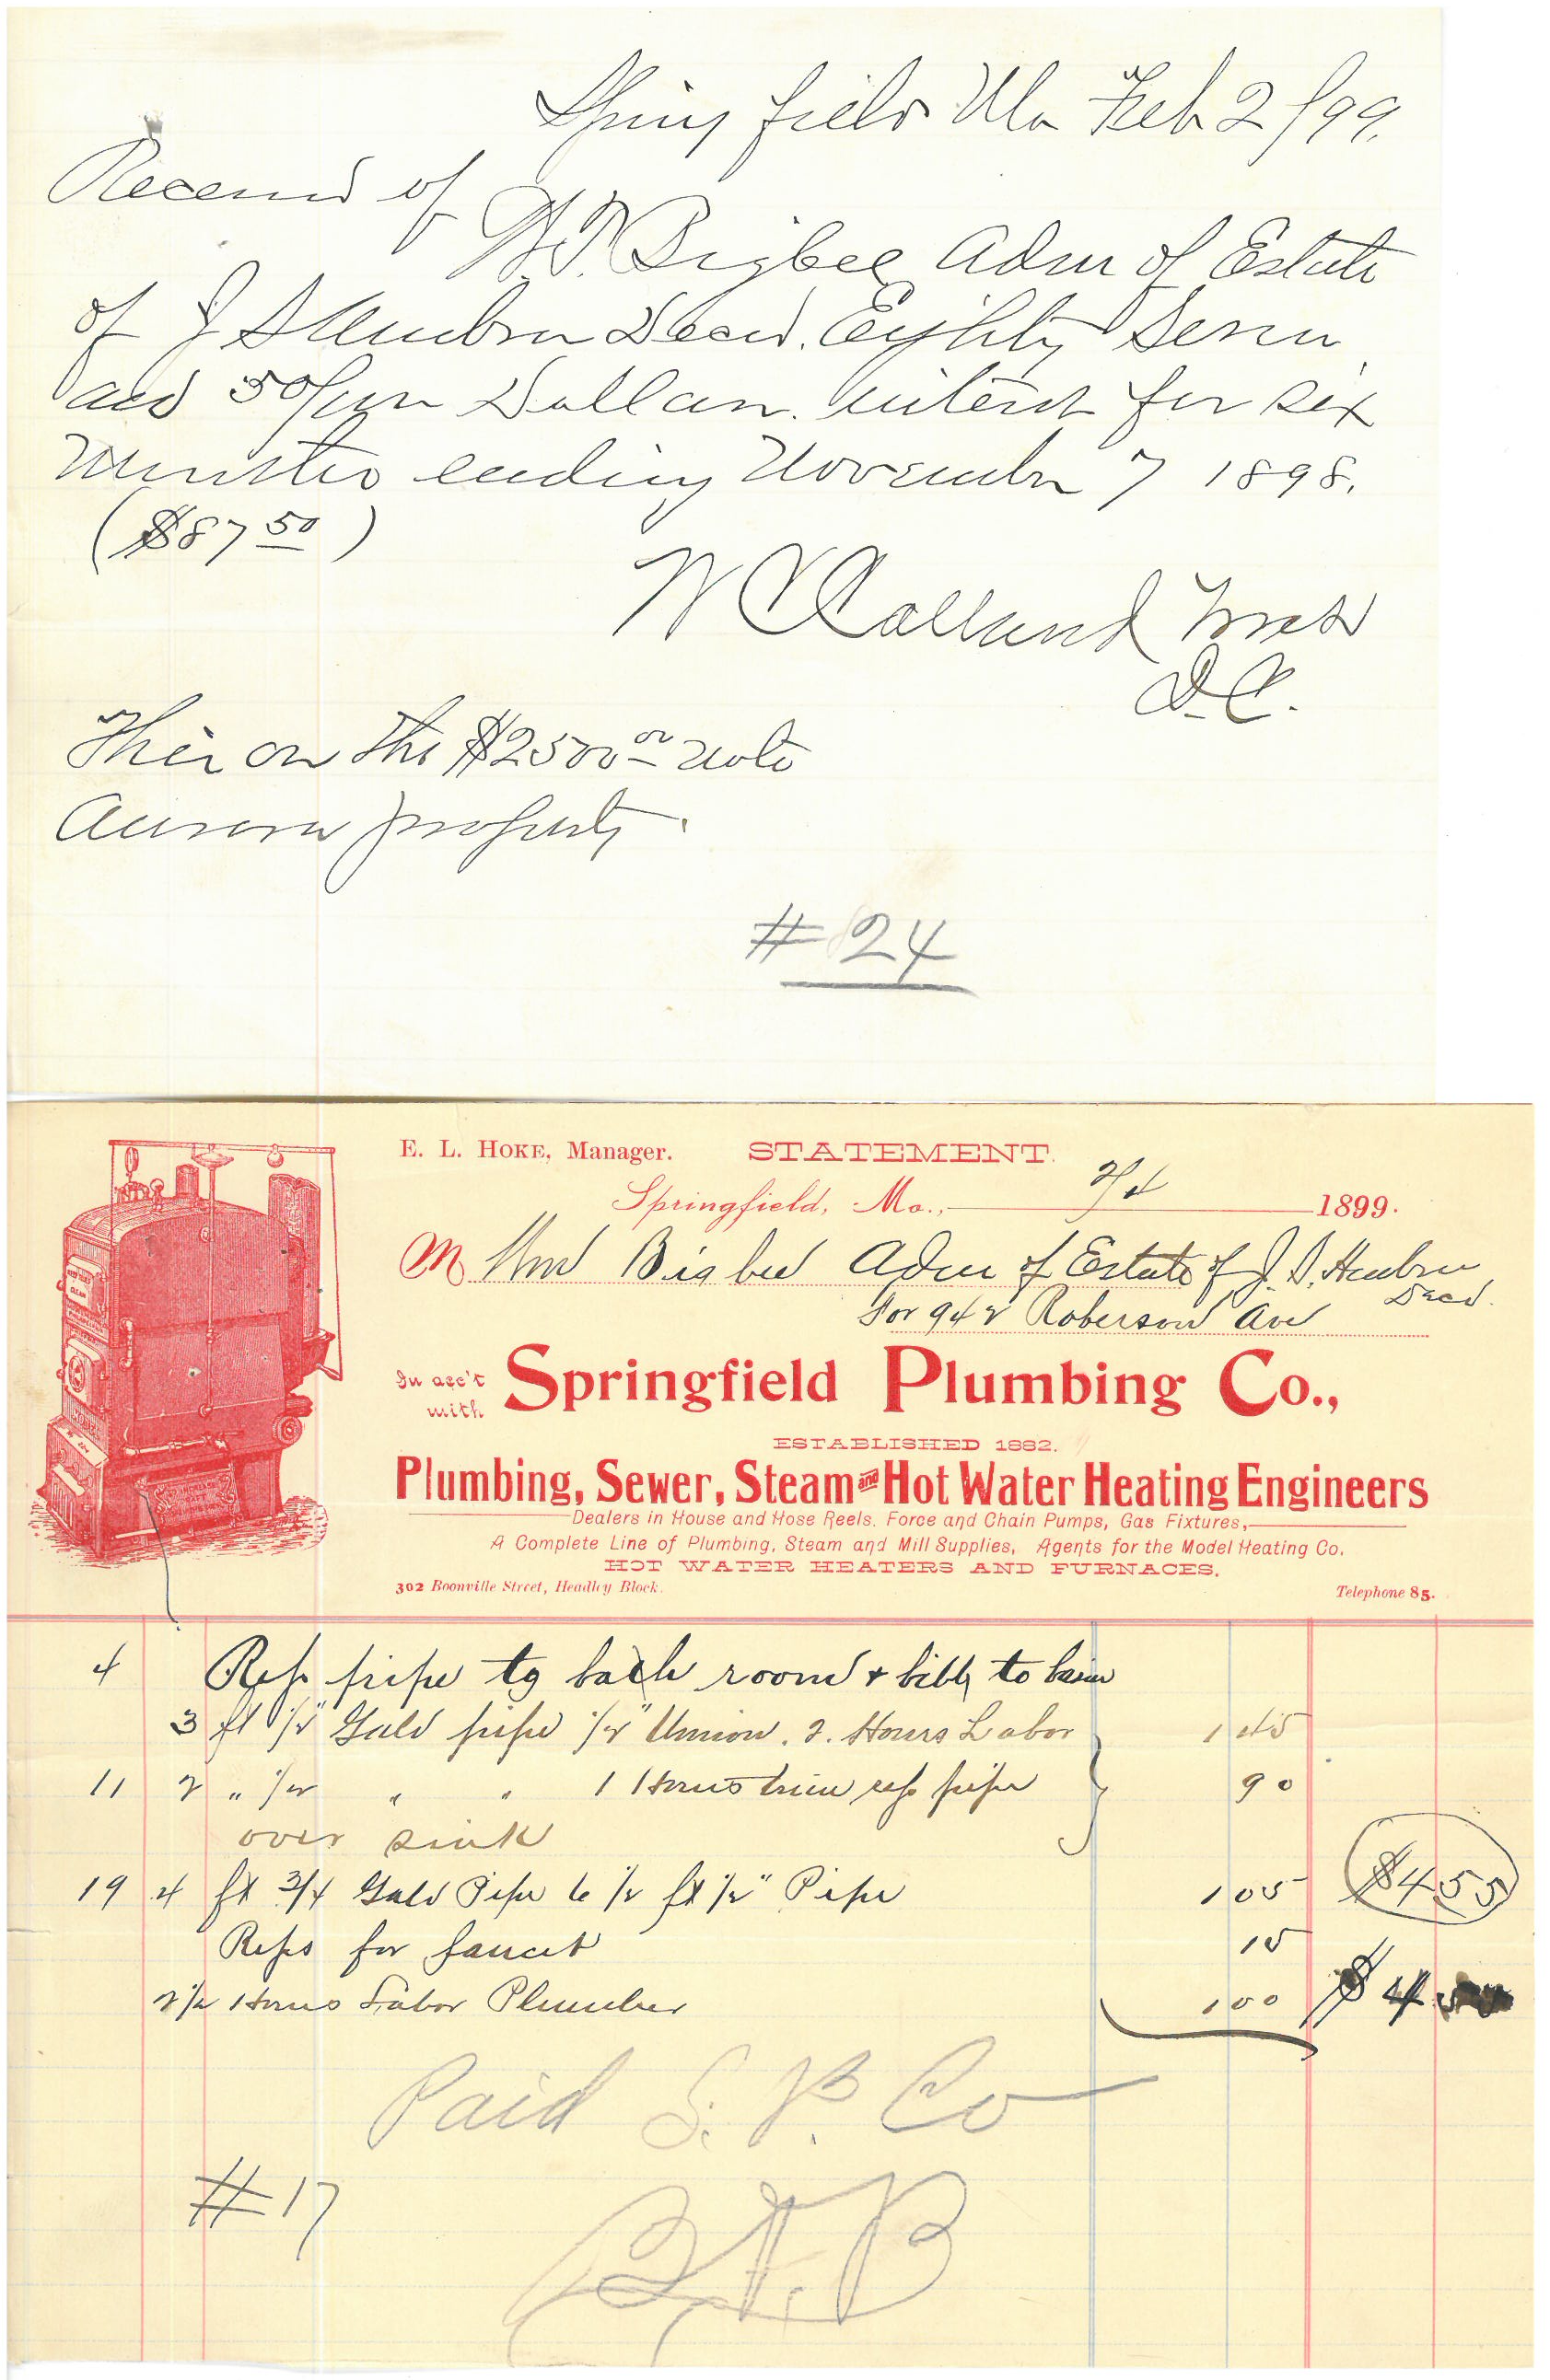 Springfield Mo Feb 2/99.
Received of
W. T. Bigbee Adm of Estate
of J S Ambrn Decd. Eighty Seven
and 50/100 Dollars. interest for six
Months ending November 7 1898.
($87 50)
W C Calland Trets
D.C.
Their on the $2500 00 note
Aurora property.
# 24
E. L. HOKE, Manager. STATEMENT.
Springfield, Mo., 2/4 1899.
M Wm Bigbee Adm of Estate of J. S.
Decd.
For 942 Roberson Ave
In acc't with Springfield Plumbing Co.,
ESTABLISHED 1882.
Plumbing, Sewer, Steam and Hot Water Heating Engineers
Dealers in House and Hose Reels. Force and Chain Pumps, Gas Fixtures,
A Complete Line of Plumbing, Steam and Mill Supplies, Agents for the Model Heating Co.
HOT WATER HEATERS AND FURNACES.
302 Boonville Street, Headley Block. Telephone 85.
4 Rep pipe to bath room + bibb to basin
3 ft 1/2" Galv pipe 1/2" Union. 2. Hours Labor 1 45
11 2 " 1/2 " " 1 Hours time rep pipe 90
over sink
19 4 ft 3/4 Galv Pipe 6 1/2 ft 1/2" Pipe 1 05 $4 55
Reps for faucet 15
2 1/2 Hours Labor Plumber 1 00 $4
Paid S. P. Co
# 17